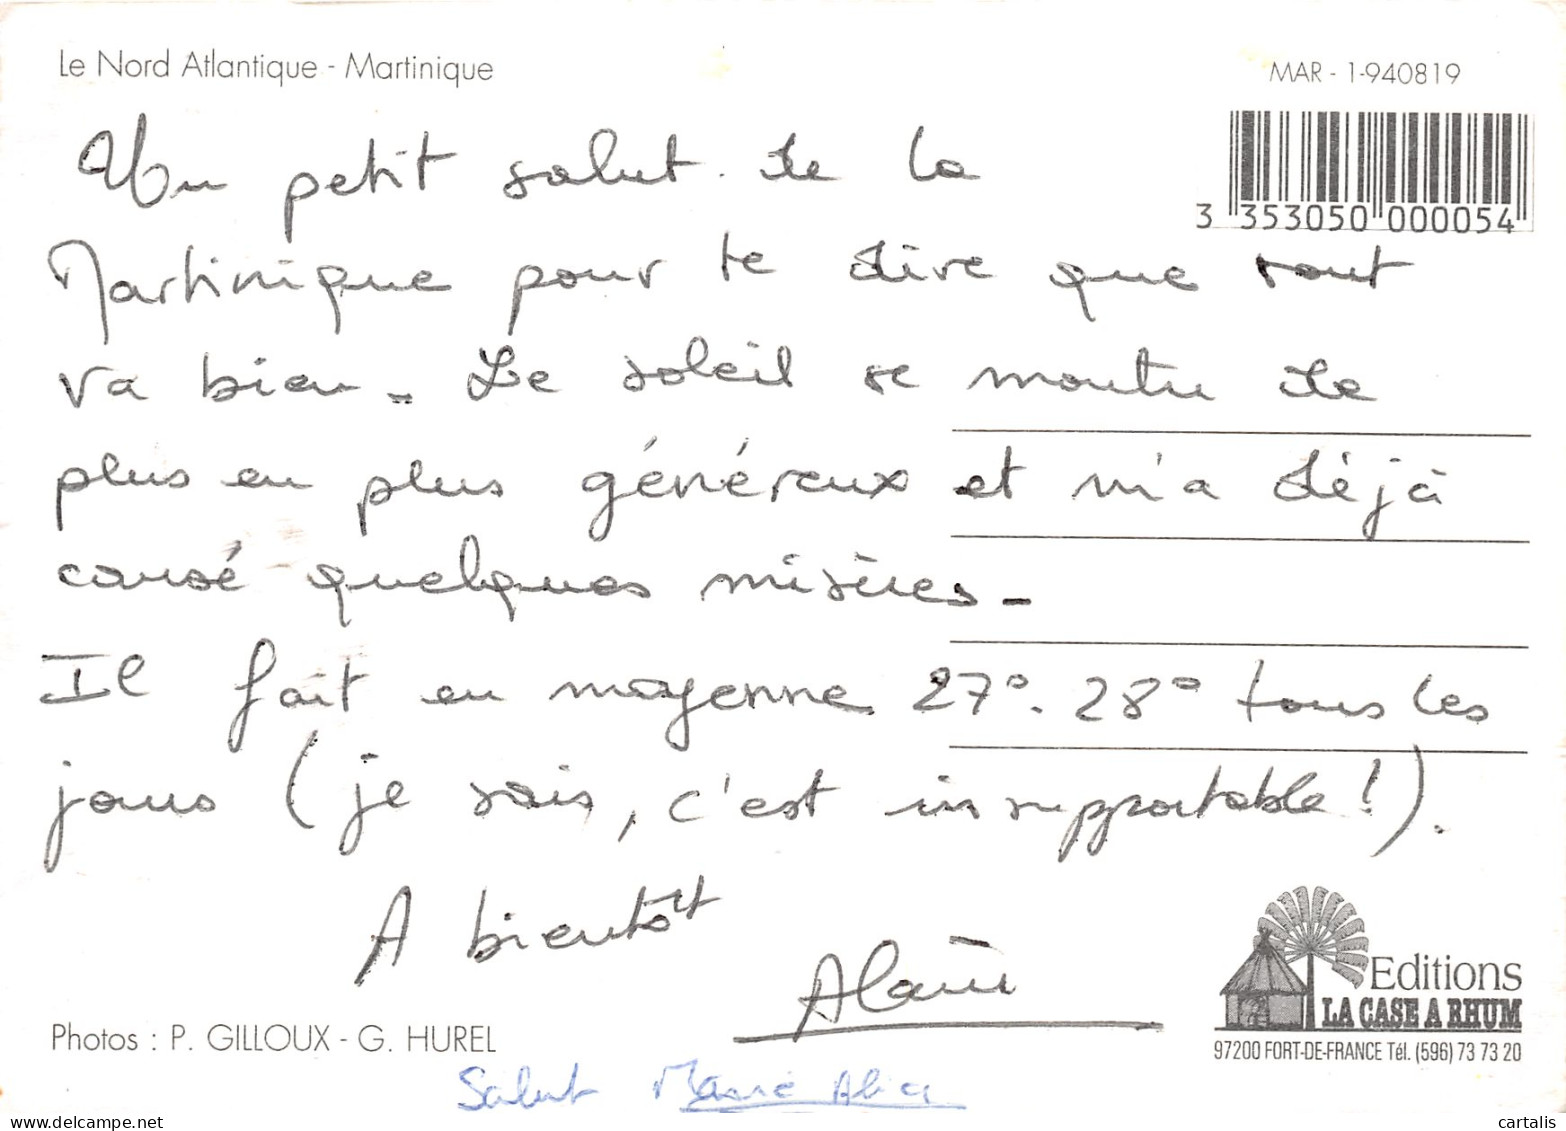 Le Nord Atlantique - Martinique
MAR - 1-940819
3 353050 000054
Un petit salut de la
Martinique pour te dire que tout
va bien. Le soleil se montre de
plus en plus généreux et m'a déjà
causé quelques misères.
Il fait en moyenne 27°.28° tous les
jours (je sais, c'est insupportable!).
A bientôt
Alain
Editions
LA CASE A RHUM
97200 FORT-DE-FRANCE Tél. (596) 73 73 20
Photos : P. GILLOUX - G. HUREL
Salut
cartalis
www.delcampe.net